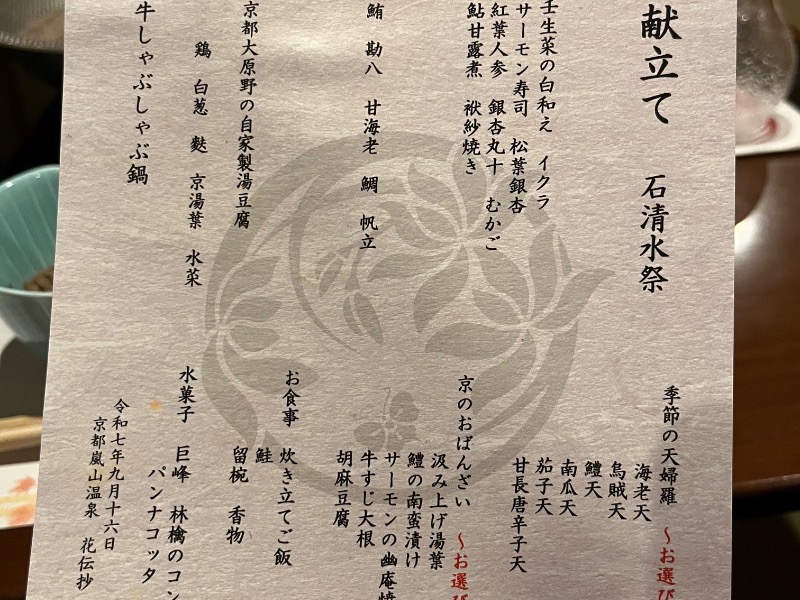 献立て　石清水祭
壬生菜の白和え　イクラ
サーモン寿司　松葉銀杏
紅葉人参　銀杏丸十　むかご
鮎甘露煮　袱紗焼き
鮪　勘八　甘海老　鯛　帆立
京都大原野の自家製湯豆腐
鶏　白葱　麩　京湯葉　水菜
牛しゃぶしゃぶ鍋
季節の天婦羅　～お選び
海老天
烏賊天
鱧天
南瓜天
茄子天
甘長唐辛子天
京のおばんざい　～お選び
汲み上げ湯葉
鱧の南蛮漬け
サーモンの幽庵焼
牛すじ大根
胡麻豆腐
お食事　炊き立てご飯
鮭
留椀　香物
水菓子　巨峰　林檎のコン
パンナコッタ
令和七年九月十六日
京都嵐山温泉　花伝抄